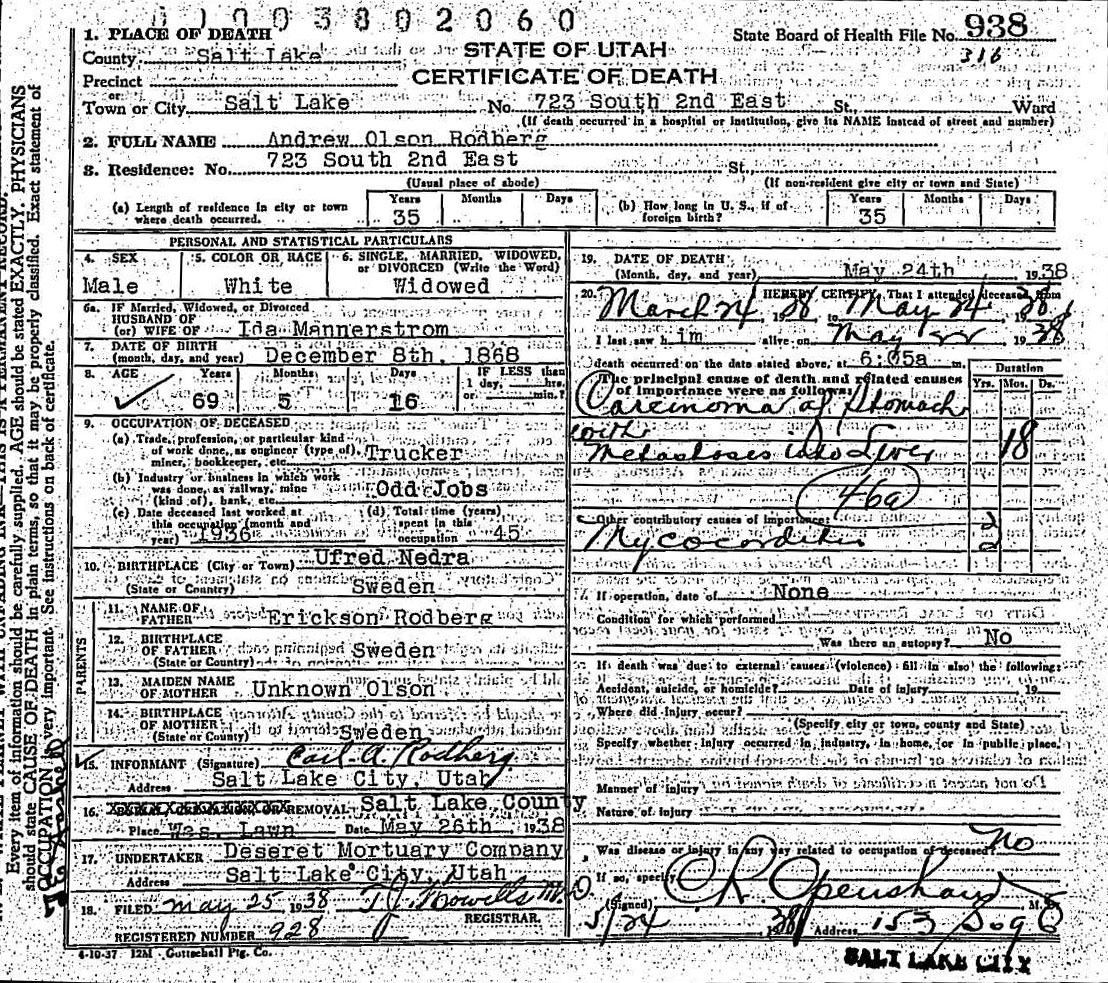 0003802060
1. PLACE OF DEATH
State Board of Health File No. 938
316
County Salt Lake
STATE OF UTAH
Precinct
CERTIFICATE OF DEATH
or
Town or City Salt Lake No. 723 South 2nd East St. Ward
(If death occurred in a hospital or institution, give its NAME instead of street and number)
2. FULL NAME Andrew Olson Rodberg
3. Residence: No. 723 South 2nd East St.
(Usual place of abode) (If non-resident give city or town and State)
(a) Length of residence in city or town where death occurred. Years 35 Months Days
(b) How long in U. S., if of foreign birth? Years 35 Months Days
PERSONAL AND STATISTICAL PARTICULARS
4. SEX Male
5. COLOR OR RACE White
6. SINGLE, MARRIED, WIDOWED, or DIVORCED (Write the Word) Widowed
6a. IF Married, Widowed, or Divorced
HUSBAND OF
(or) WIFE OF Ida Mannerstrom
7. DATE OF BIRTH
(month, day, and year) December 8th, 1868
8. AGE Years 69 Months 5 Days 16 IF LESS than 1 day, hrs. or min.?
9. OCCUPATION OF DECEASED
(a) Trade, profession, or particular kind of work done, as engineer (type of), miner, bookkeeper, etc. Trucker
(b) Industry or business in which work was done, as railway, mine (kind of), bank, etc. Odd Jobs
(c) Date deceased last worked at this occupation (month and year) 1936
(d) Total time (years) spent in this occupation 45
10. BIRTHPLACE (City or Town) Ufred Nedra
(State or Country) Sweden
PARENTS
11. NAME OF FATHER Erickson Rodberg
12. BIRTHPLACE OF FATHER (State or Country) Sweden
13. MAIDEN NAME OF MOTHER Unknown Olson
14. BIRTHPLACE OF MOTHER (State or Country) Sweden
15. INFORMANT (Signature) Carl A. Rodberg
Address Salt Lake City, Utah
16. BURIAL, CREMATION OR REMOVAL Salt Lake County
Place Was. Lawn Date May 26th, 1938
17. UNDERTAKER Deseret Mortuary Company
Address Salt Lake City, Utah
18. FILED May 25 1938 T. J. Howells M.D.
REGISTRAR.
REGISTERED NUMBER 928
4-10-37 12M Gottschall Ptg. Co.
19. DATE OF DEATH
(Month, day, and year) May 24th 1938
20. I HEREBY CERTIFY, That I attended deceased from
March 24 1938 to May 24 1938
I last saw him alive on May 22 1938
death occurred on the date stated above, at 6:05a m.
The principal cause of death and related causes of importance were as follows:
Duration
Yrs. Mos. Ds.
Carcinoma of Stomach
with
Metastases into Liver 18
46a
Other contributory causes of importance:
Myocorditis 2
If operation, date of None
Condition for which performed
Was there an autopsy? No
If death was due to external causes (violence) fill in also the following:
Accident, suicide, or homicide? Date of injury 19
Where did injury occur?
(Specify city or town, county and State)
Specify whether injury occurred in industry, in home, or in public place.
Manner of injury
Nature of injury
Was disease or injury in any way related to occupation of deceased? No
If so, specify
(Signed) C R Openshaw M.D
5/24 1938 Address 153 So 9 E
SALT LAKE CITY
Every item of information should be carefully supplied. AGE should be stated EXACTLY. PHYSICIANS
should state CAUSE OF DEATH in plain terms, so that it may be properly classified. Exact statement of
OCCUPATION is very important. See instructions on back of certificate.